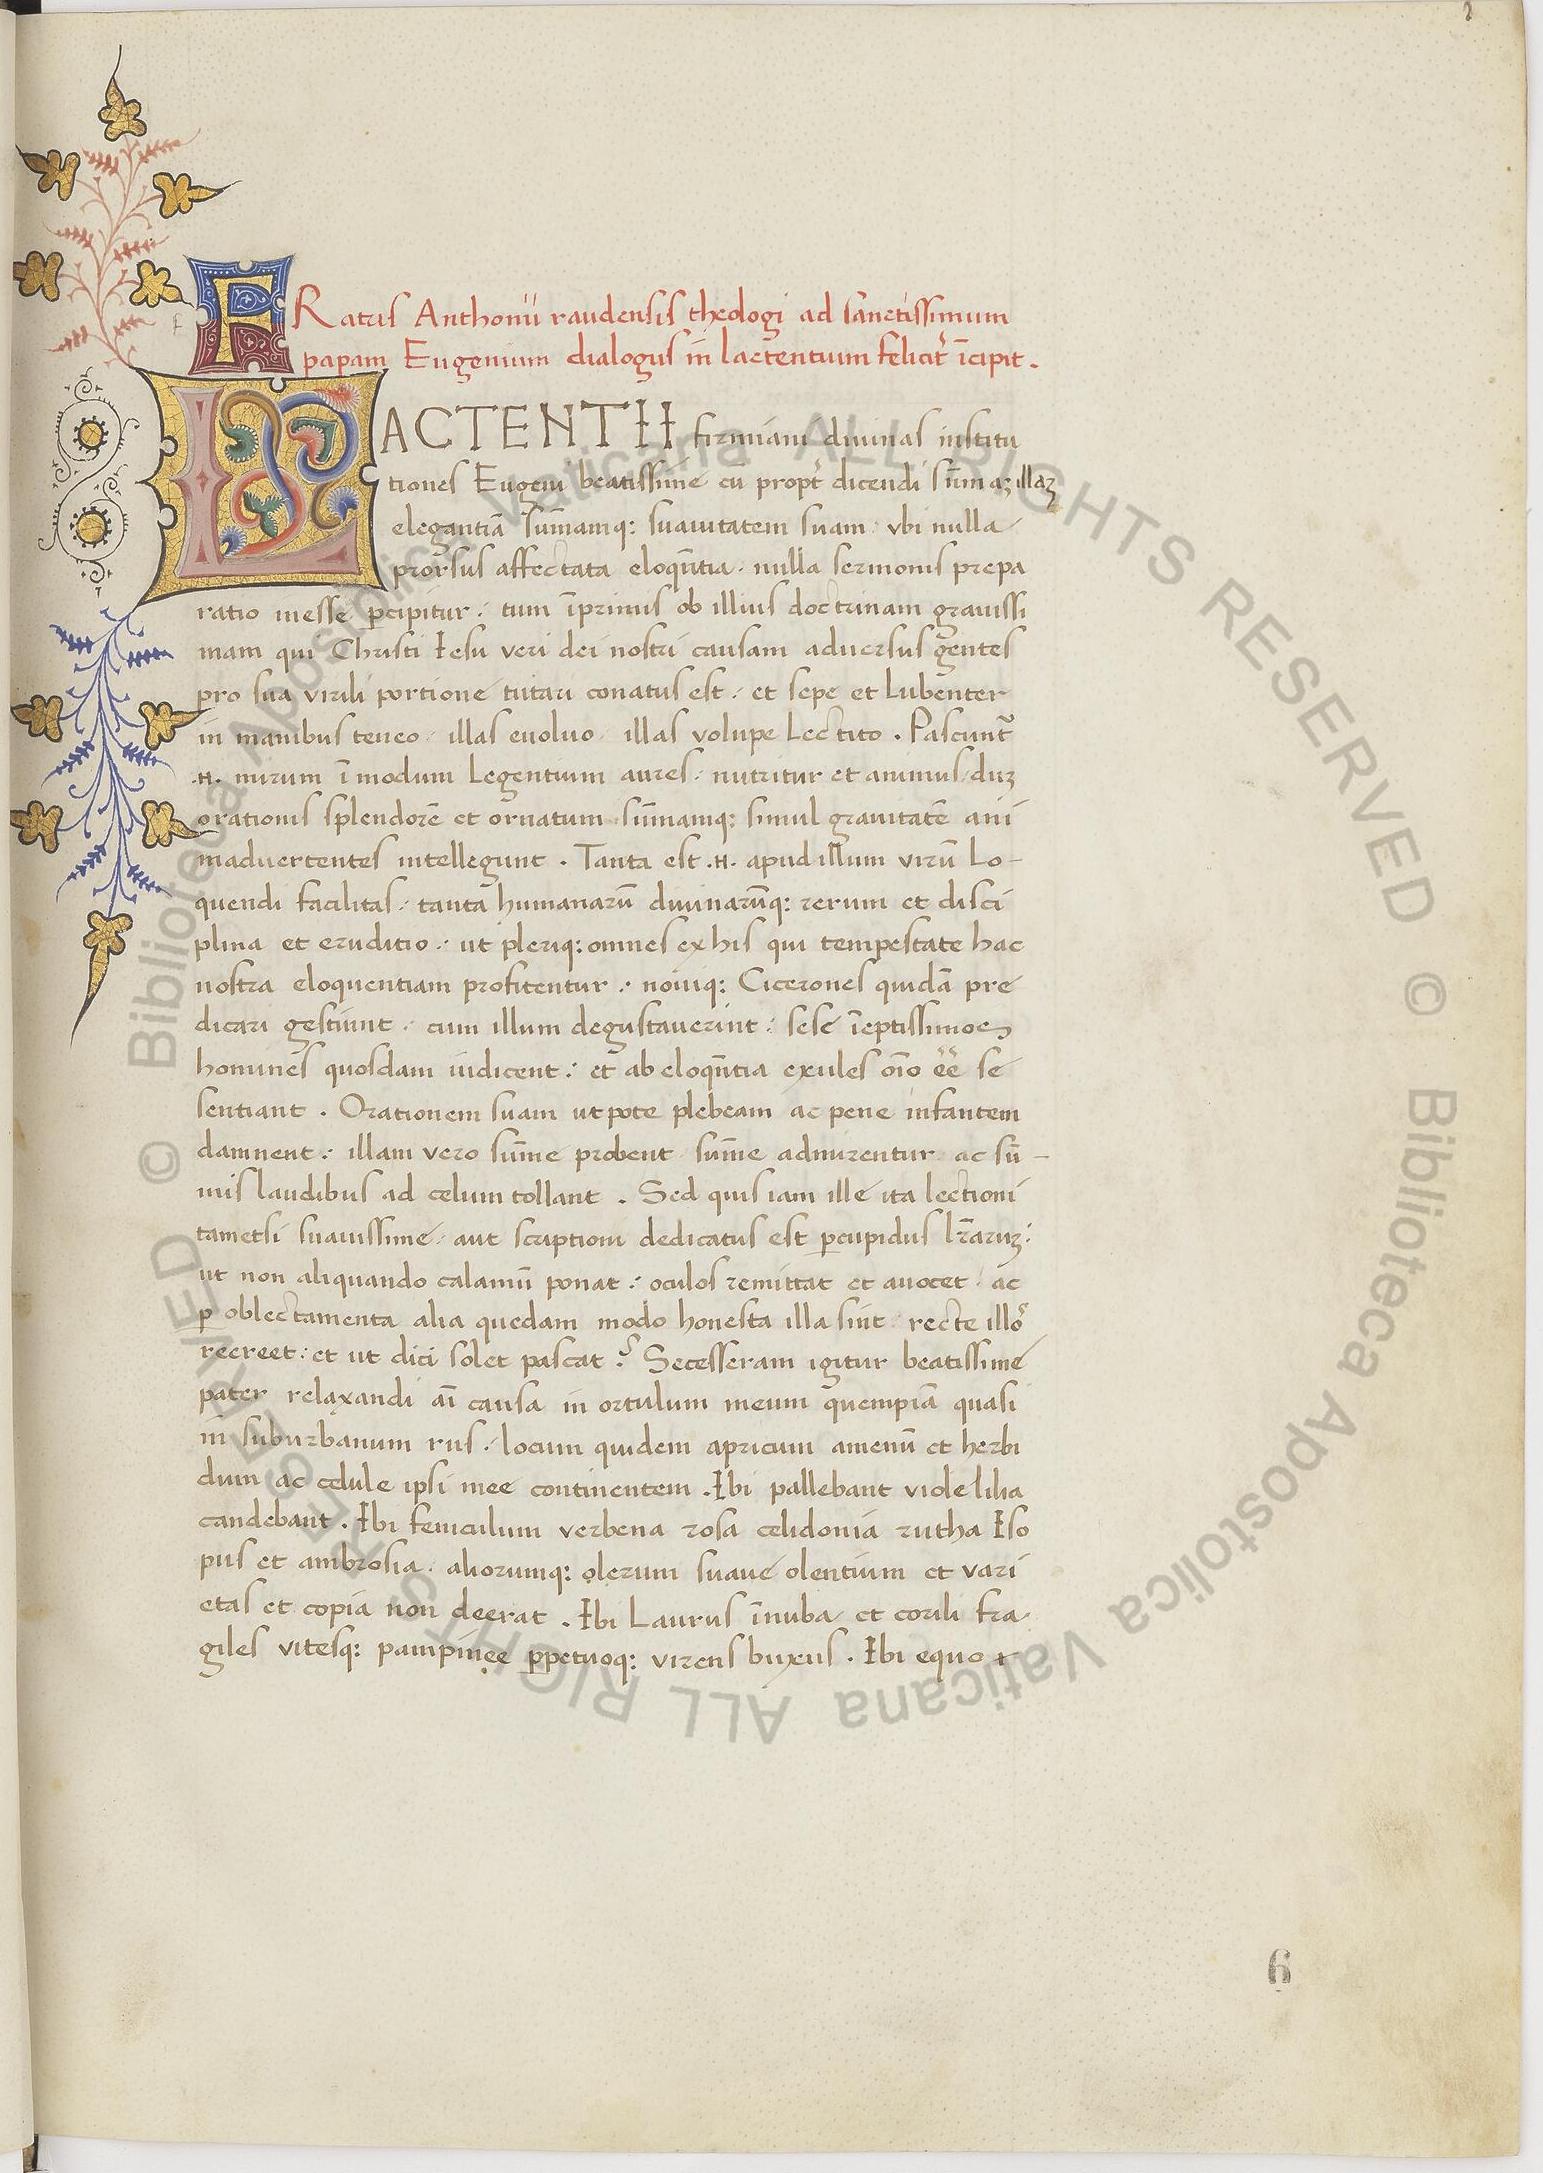 FRatris Anthonii raudensis theologi ad sanctissimum
papam Eugenium dialogus in lactentium felicit̄ īcipit.
LACTENTII firmiani diuinas institu
tiones Eugeni beatissime cū propt̄ dicendi sūmaꝫ illaꝫ
elegantiā sūmamq: suauitatem suam vbi nulla
prorsus affectata eloquētia nulla sermonis prepa
ratio inesse ꝑcipitur: tum īprimis ob illius doctrinam grauissi
mam qui Christi Iesu veri dei nostri causam aduersus gentes
pro sua virili portione tutari conatus est: et sepe et lubenter
in manibus teneo illas euoluo illas volupe lectito. Pascunt̄
.n. mirum ī modum legentium aures: nutritur et animus duꝫ
orationis splendorē et ornatum sūmamq: simul grauitatē ani
maduertentes intellegunt. Tanta est .n. apud illum virū lo-
quendi facilitas: tanta humanarū diuinarūq: rerum et disci
plina et eruditio: ut pleriq: omnes ex his qui tempestate hac
nostra eloquentiam profitentur: nouiq: Cicerones quidā pre
dicari gestiunt: cum illum degustauerint: sese īeptissimos
homines quosdam iudicent: et ab eloquētia exules oīo ēē se
sentiant. Orationem suam utpote plebeam ac pene infantem
damnent: illam vero sūme probent sūme admirentur ac sū-
mis laudibus ad celum tollant. Sed quis iam ille ita lectioni
tametsi suauissime aut scriptioni dedicatus est ꝑcupidus lr̄aruꝫ:
ut non aliquando calamū ponat: oculos remittat et auocet ac
ꝑ oblectamenta alia quedam modo honesta illa sint recte illo᷒
recreet: et ut dici solet pascat? Secesseram igitur beatissime
pater relaxandi aī causa in ortulum meum quempiā quasi
in suburbanum rus: locum quidem apricum amenū et herbi
dum ac celule ipsi mee continentem. Ibi pallebant viole lilia
candebant. Ibi feniculum verbena rosa celidonia rutha Iso
pus et ambrosia aliorumq: olerum suaue olentium et vari
etas et copia non deerat. Ibi laurus īnuba et corili fra
giles vitesq: pampinee ꝑpetuoq: virens buxus. Ibi equo &
6
© Biblioteca Apostolica Vaticana ALL RIGHTS RESERVED © Biblioteca Apostolica Vaticana ALL RIGHTS RESERVED